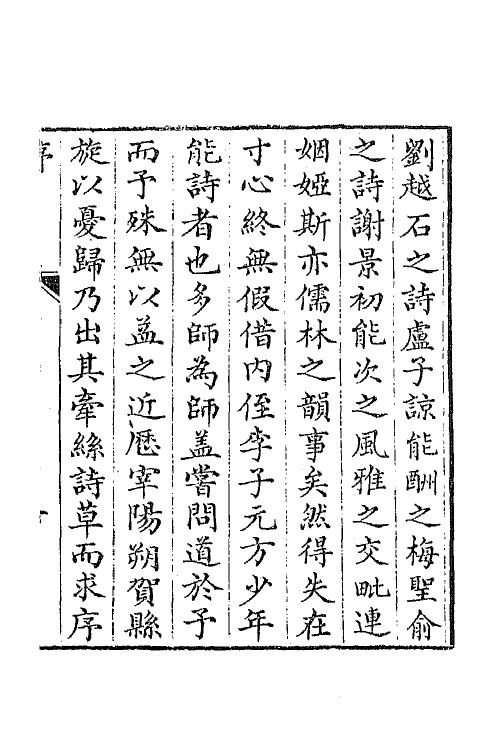 劉越石之詩盧子諒能酬之梅聖俞
之詩謝景初能次之風雅之交毗連
姻婭斯亦儒林之韻事矣然得失在
寸心終無假借内侄李子元方少年
能詩者也多師為師盖嘗問道於予
而予殊無以益之近歷宰陽朔賀縣
旋以憂歸乃出其牽絲詩草而求序
序